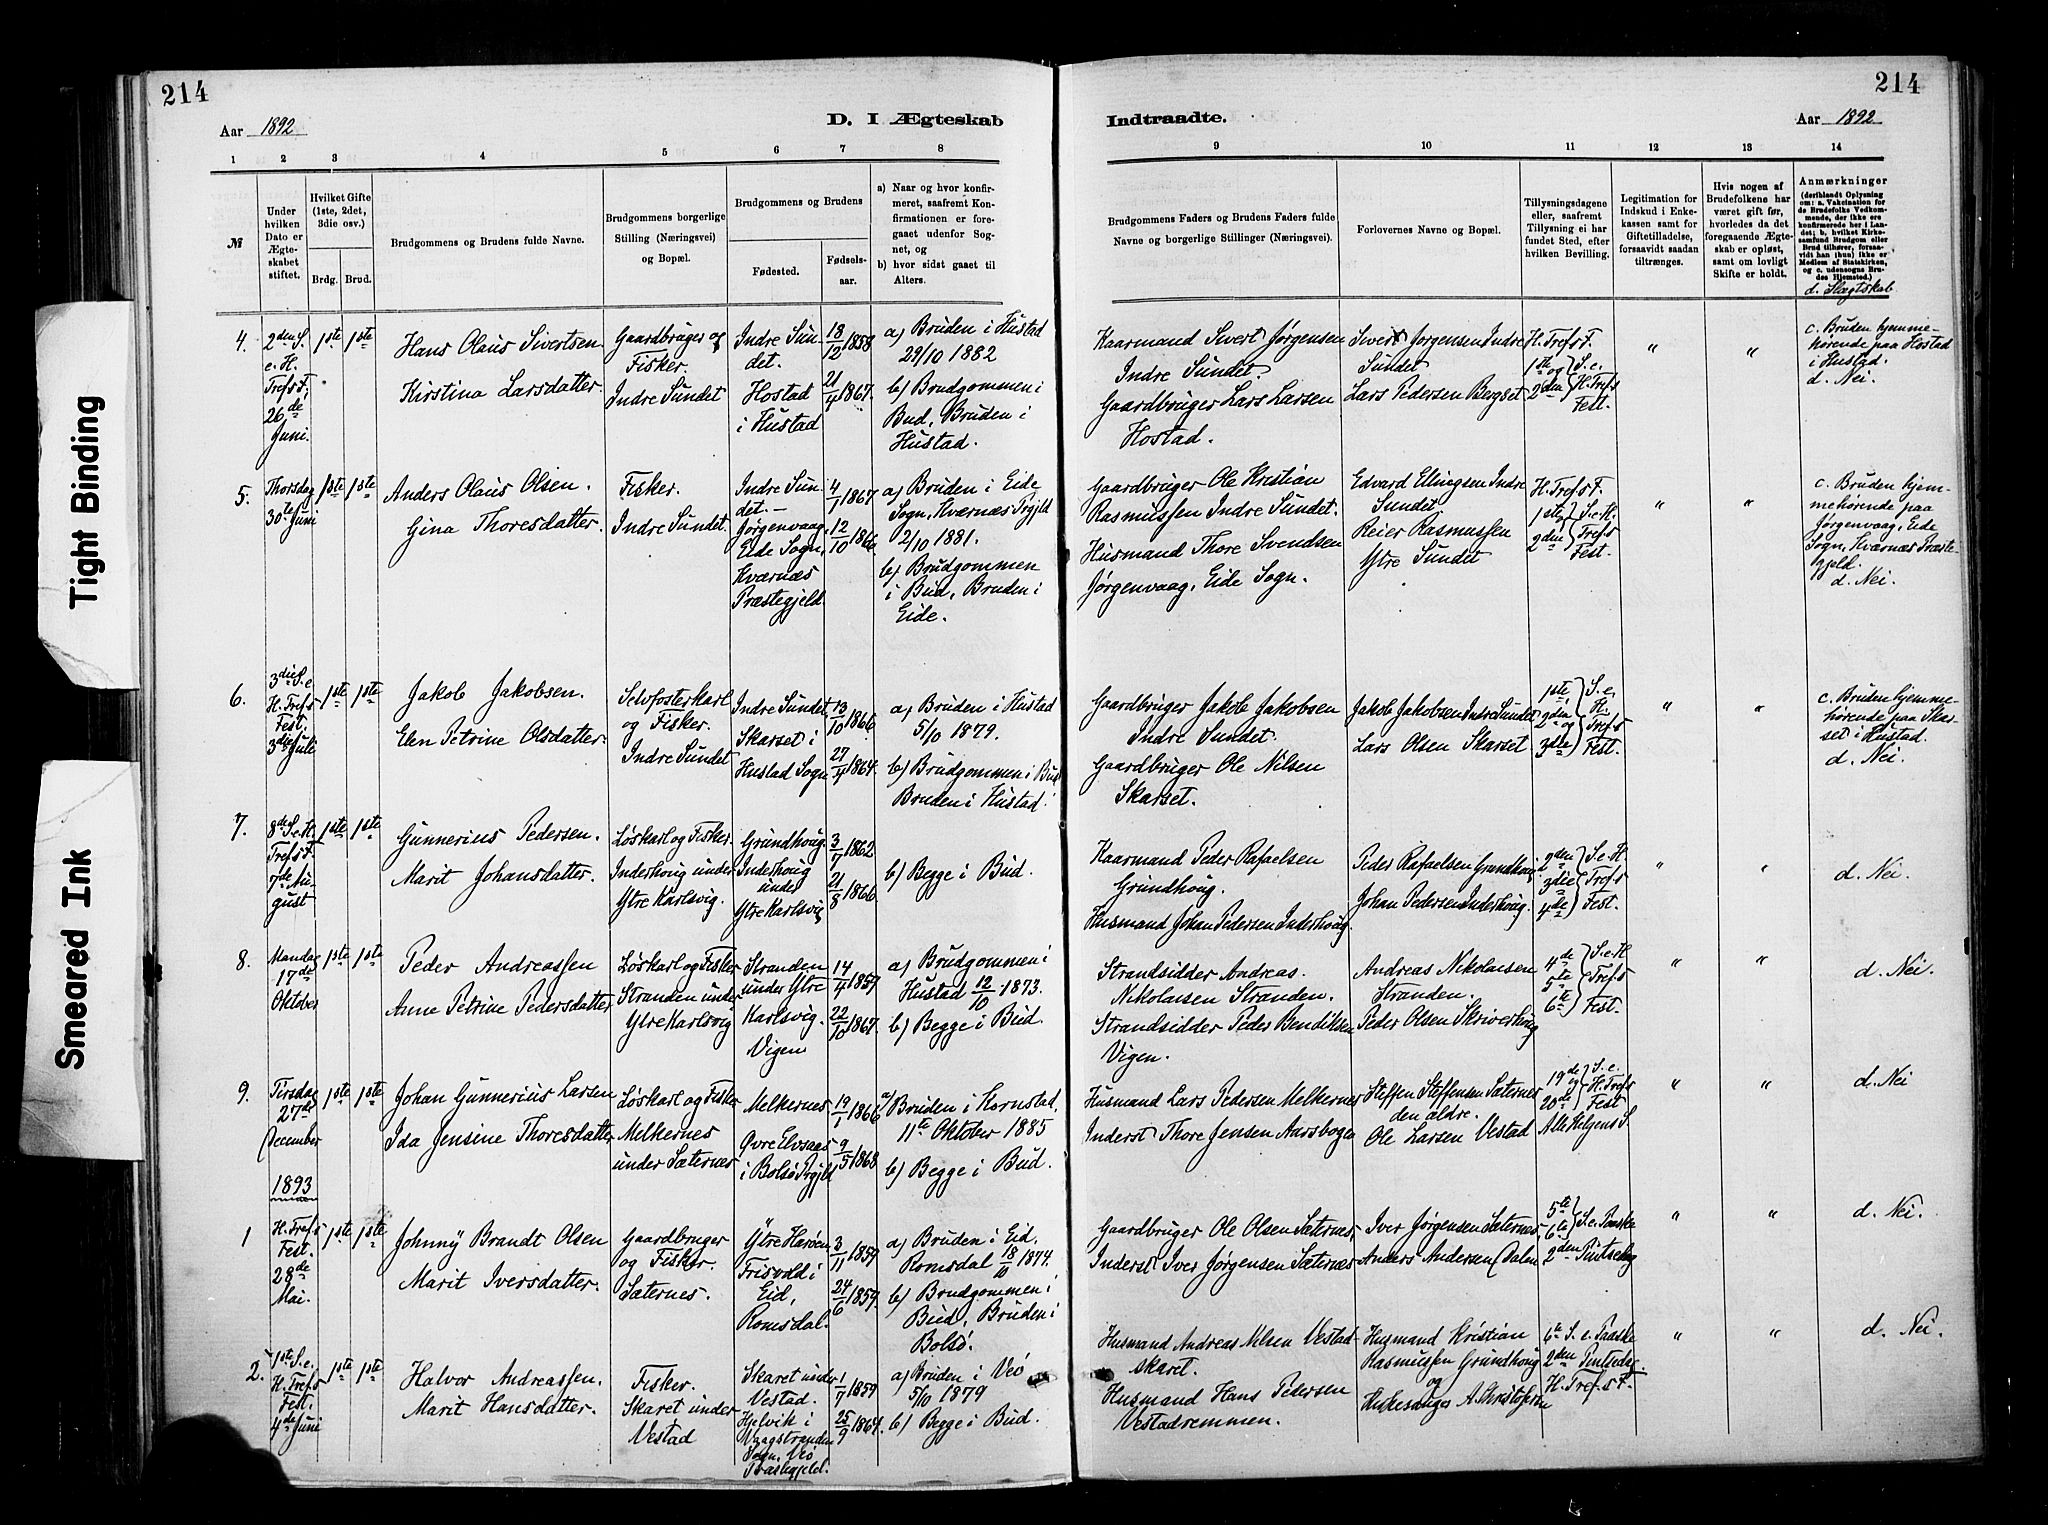 214
Aar 1892
D. I Ægteskab
1 2 3 4 5 6 7 8
№
Under hvilken Dato er Ægteskabet stiftet.
Hvilket Gifte (1ste, 2det, 3die osv.)
Brdg. Brud.
Brudgommens og Brudens fulde Navne.
Brudgommens borgerlige Stilling (Næringsvei) og Bopæl.
Brudgommens og Brudens
Fødested. Fødselsaar.
a) Naar og hvor konfirmeret, saafremt Konfirmationen er foregaaet udenfor Sognet, og
b) hvor sidst gaaet til Alters.
4.
2den S. e. H. Tref.s F. 26de Juni.
1ste 1ste
Hans Olaus Sivertsen
Kirstina Larsdatter
Gaardbruger og Fisker.
Indre Sundet
Indre Sundet.
Hostad i Hustad
18/12 1858
21/7 1867.
a) Bruden i Hustad 29/10 1882
b) Brudgommen i Bud, Bruden i Hustad.
5.
Thorsdag 30te Juni
1ste 1ste
Anders Olaus Olsen.
Gina Thoresdatter.
Fisker.
Indre Sundet.
Indre Sundet.–
Jørgenvaag, Eide Sogn, Kværnæs Præstegjeld.
4/7 1867
12/10 1866
a) Bruden i Eide Sogn, Kværnæs Prgjld 2/10 1881.
b) Brudgommen i Bud, Bruden i Eide.
6.
3die S. e. H. Tref.s Fest. 3die Juli
1ste 1ste
Jakob Jakobsen.
Elen Petrine Olsdatter.
Selvfosterkarl og Fisker.
Indre Sundet
Indre Sundet
Skarset i Hustad Sogn
13/10 1866
27/4 1864.
a) Bruden i Hustad 5/10 1879.
b) Brudgommen i Bud Bruden i Hustad.
7.
8de S. e. H. Tref.s F. 7de August
1ste 1ste
Gunnerius Pedersen.
Marit Johansdatter.
Løskarl og Fisker.
Inderhoug under Ytre Karlsvig.
Grundhoug.
Inderhoug under Ytre Karlsvig
3/7 1862
21/8 1866.
b) Begge i Bud.
8.
Mandag 17de Oktober
1ste 1ste
Peder Andreassen
Anne Petrine Pedersdatter
Løskarl og Fisker
Stranden under Ytre Karlsvig
Stranden under Ytre Karlsvig.
Vigen
14/4 1857
22/10 1867.
a) Brudgommen i Hustad 12/10 1873.
b) Begge i Bud.
9.
Tirsdag 27de December
1ste 1ste
Johan Gunnerius Larsen
Ida Jensine Thoresdatter
Løskarl og Fisker
Melkernes under Sæternes
Melkernes
Øvre Elvsaas i Bolsø Prgjld
19/1 1866
9/5 1868
a) Bruden i Kornstad, 11te Oktober 1885
b) Begge i Bud.
1893
1
H. Tref.s Fest. 28de Mai.
1ste 1ste
Johnny Brandt Olsen
Marit Iversdatter.
Gaardbruger og Fisker.
Sæternes.
Ytre Harøen
Frisvold i Eid, Romsdal.
3/11 1859
24/6 1859.
a) Bruden i Eid, Romsdal 18/10 1874.
b) Brudgommen i Bud, Bruden i Bolsø.
2.
1ste S. e. H. Tref.s Fest. 4de Juni
1ste 1ste
Halvor Andreassen.
Marit Hansdatter.
Fisker.
Skaret under Vestad
Skaret under Vestad.
Hjelvik i Vaagstranden Sogn, Veø Præstegjeld.
1/7 1859
25/9 1864.
a) Bruden i Veø 5/10 1879
b) Begge i Bud.
214
Indtraadte.
Aar 1892
9 10 11 12 13 14
Brudgommens Faders og Brudens Faders fulde Navne og borgerlige Stillinger (Næringsvei).
Forlovernes Navne og Bopæl.
Tillysningsdagene eller, saafremt Tillysning ei har fundet Sted, efter hvilken Bevilling.
Legitimation for Indskud i Enkekassen samt for Giftetilladelse, forsaavidt saadan tiltrænges.
Hvis nogen af Brudefolkene har været gift før, hvorledes da det foregaaende Ægteskab er opløst, samt om lovligt Skifte er holdt.
Anmærkninger
(deriblandt Oplysning om: a. Vakcination for de Brudefolks Vedkommende, der ikke ere konfirmerede her i Landet; b. hvilket Kirkesamfund Brudgom eller Brud tilhører, forsaavidt han (hun) ikke er Medlem af Statskirken, og c. udensogns Brudes Hjemsted.)
d. Slægtskab
Kaarmand Sivert Jørgensen Indre Sundet.
Gaardbruger Lars Larsen Hostad.
Sivert Jørgensen Indre Sundet
Lars Pedersen Bergset
H. Tref.s F.
1ste og 2den S. e. H. Tref.s Fest.
" "
c. Bruden hjemmehørende paa Hostad i Hustad.
d. Nei.
Gaardbruger Ole Kristian Rasmussen Indre Sundet.
Husmand Thore Svendsen Jørgenvaag, Eide Sogn.
Edvard Ellingsen Indre Sundet.
Reier Rasmussen Ytre Sundet
H. Tref.s F.
1ste 2den S. e. H. Tref.s Fest.
" "
c. Bruden hjemmehørende paa Jørgenvaag, Eide Sogn, Kværnæs Præstegjeld.
d. Nei.
Gaardbruger Jakob Jakobsen Indre Sundet.
Gaardbruger Ole Nilsen Skarset.
Jakob Jakobsen Indre Sundet
Lars Olsen Skarset
1ste 2den og 3die S. e. H. Tref.s Fest.
" "
c. Bruden hjemmehørende paa Skarset i Hustad.
d. Nei.
Kaarmand Peder Rafaelsen Grundhoug.
Husmand Johan Pedersen Inderhoug.
Peder Rafaelsen Grundhoug
Johan Pedersen Inderhoug.
2den 3die 4de S. e. H. Tref.s Fest.
" "
d. Nei.
Strandsidder Andreas Nikolaisen Stranden.
Strandsidder Peder Bendiksen Vigen.
Andreas Nikolaisen Stranden.
Peder Olsen Skriverhoug
4de 5te 6te S. e. H. Tref.s Fest.
" "
d. Nei.
Husmand Lars Pedersen Melkernes
Inderst Thore Jensen Aarsbogen
Steffen Steffensen Sæternes den ældre.
Ole Larsen Vestad
19de og 20de S. e. H. Tref.s Fest
Alle Helgens S.
" "
d. Nei
Gaardbruger Ole Olsen Sæternes,
Inderst Iver Jørgensen Sæternes
Iver Jørgensen Sæternes,
Anders Andersen Dalen
5te 6te S. e. Paaske
2den Pintsedag
" "
d. Nei.
Husmand Andreas Nilsen Vestadskaret.
Husmand Hans Pedersen Vestadremmen.
Husmand Kristian Rasmussen Grundhoug og
A. Christofersen
6te S. e. Paaske
2den Pintsedag.
H. Tref.s F.
" "
d. Nei.
Tight Binding
Smeared Ink